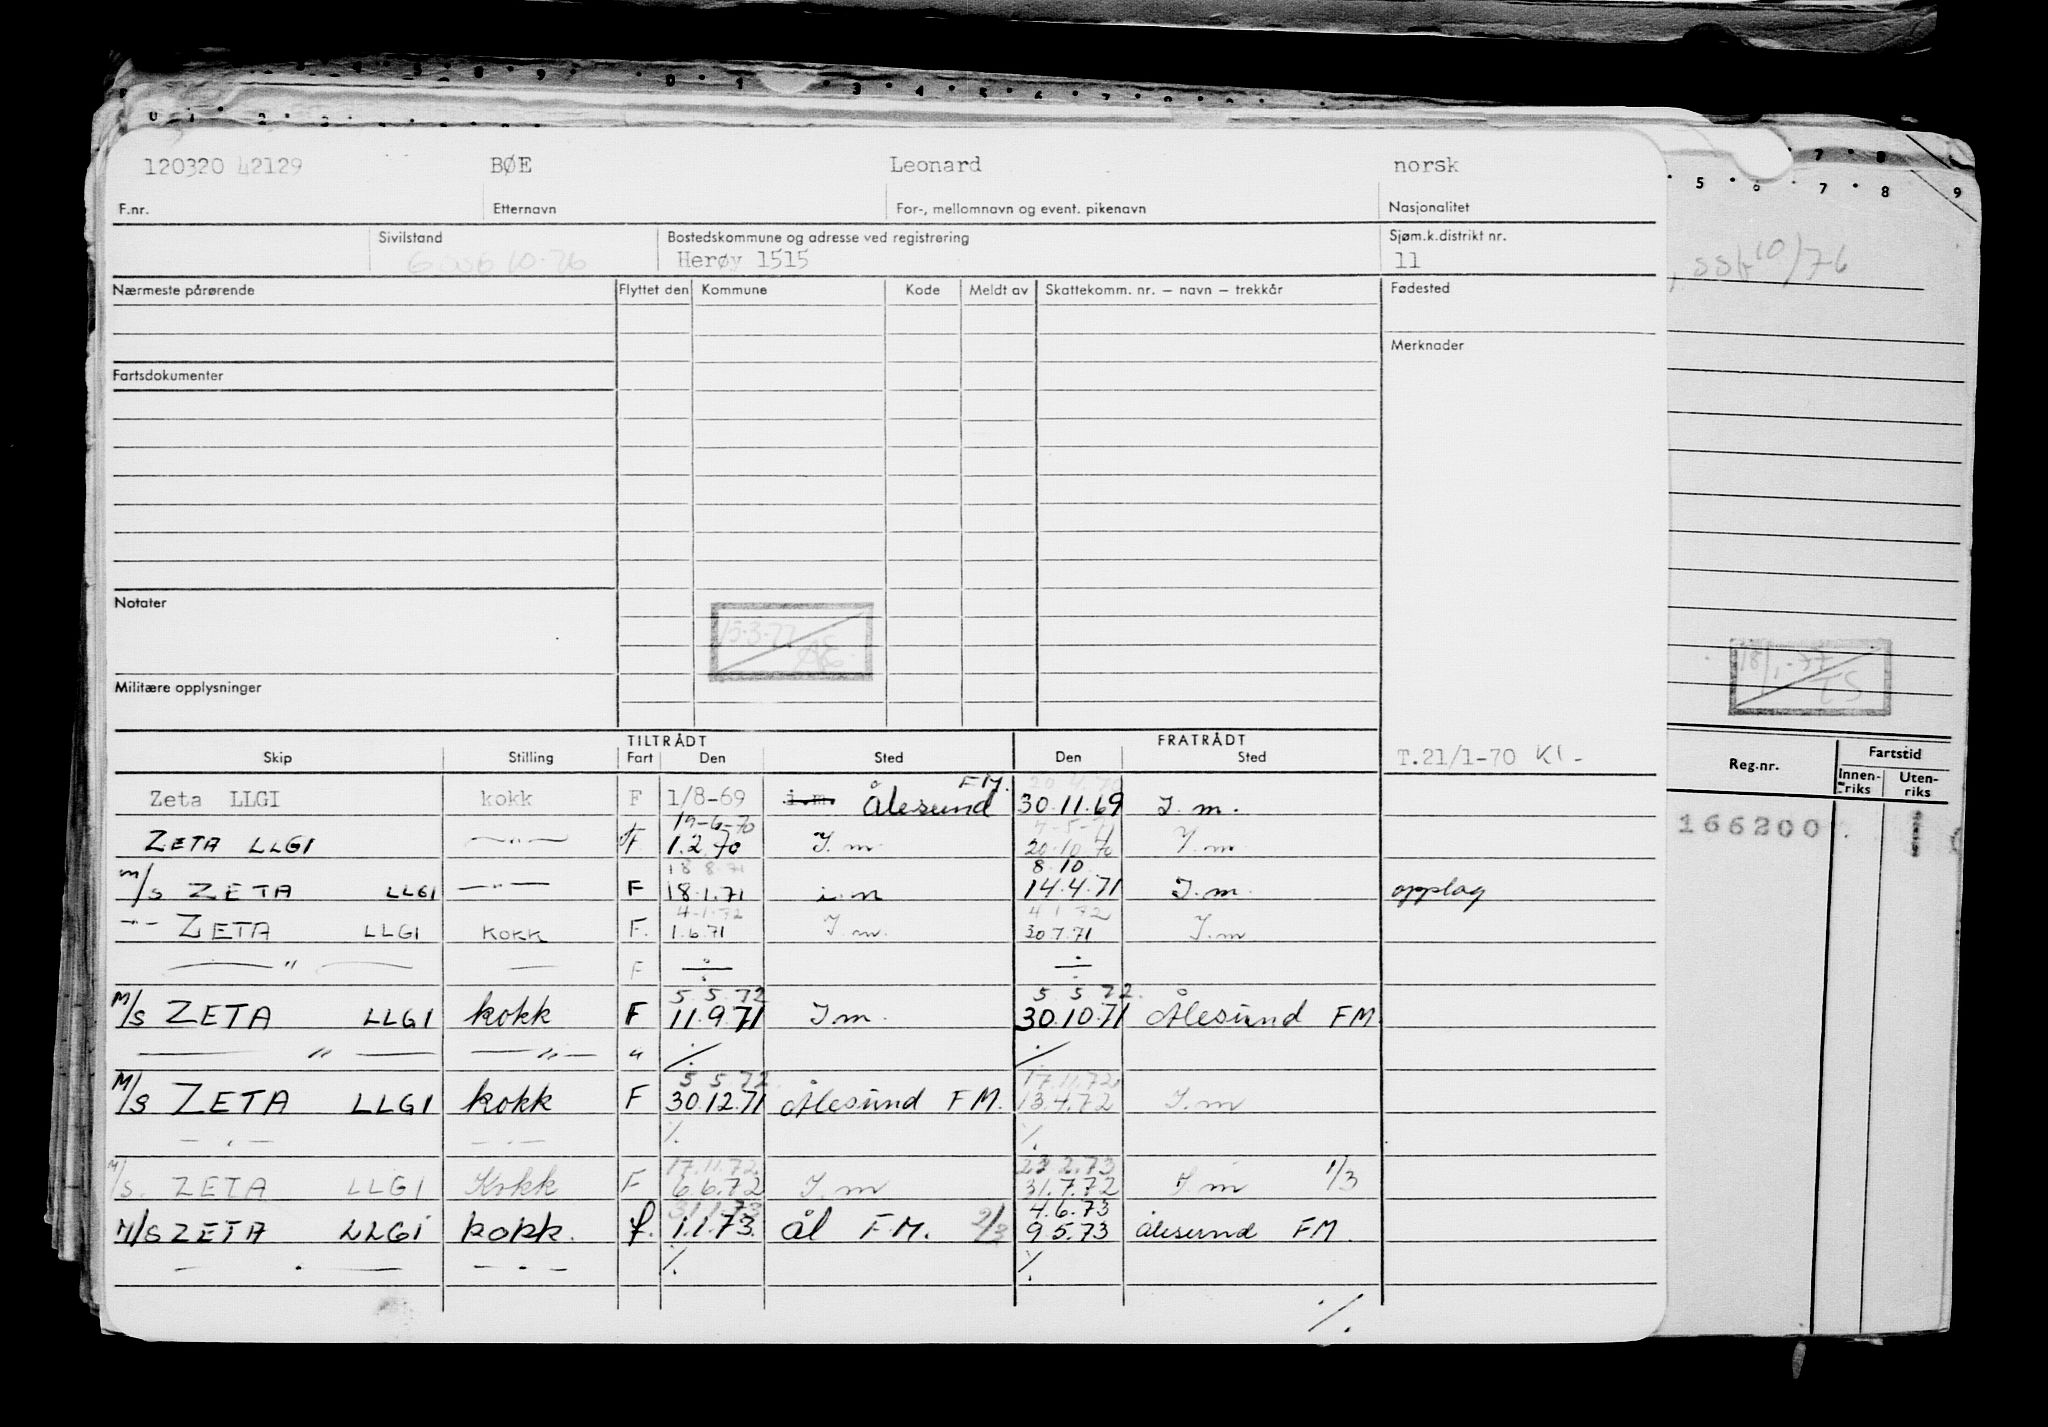 120320 42129 BØE Leonard norsk
F.nr. Etternavn For-, mellomnavn og event. pikenavn Nasjonalitet
Sivilstand Bostedskommune og adresse ved registrering Sjøm.k.distrikt nr.
Herøy 1515 11
Nærmeste pårørende Flyttet den Kommune Kode Meldt av Skattekomm. nr. – navn – trekkår Fødested
Merknader
Fartsdokumenter
Notater
15-3-77
Militære opplysninger
TILTRÅDT FRATRÅDT
Skip Stilling Fart Den Sted Den Sted T.21/1-70 Kl-
FM. 20.4.70
Zeta LLGI kokk F 1/8-69 i.m. Ålesund 30.11.69 I.m.
19-6-70
ZETA LLGI —"— F 1.2.70 I.m 20.10.70 I.m
18 8.71 8.10
M/S ZETA LLGI —"— F 18.1.71 i.m 14.4.71 I.m. opplag
4-1-72 4 1 72
-"- ZETA LLGI KOKK F. 1.6.71 I.m. 30.7.71 I.m
— " — — F ÷ ÷
5 5 72 5 5 72.
M/S ZETA LLGI kokk F 11.9.71 I.m. 30.10.71 Ålesund FM.
— " — — " — " ٪ ٪
5 5 72. 17.11.72
M/S ZETA LLGI kokk F 30.12.71 Ålesund FM. 13.4.72 I.m
— " — — " — ٪ ٪
17.11.72 22 2.73
M/S. ZETA LLGI Kokk F 6.6.72 I.m 31.7.72 I.m 1/3
31.1.73 4.6.73
M/S ZETA LLGI kokk. f. 1.1.73. Ål FM. 2/3 9.5.73 Ålesund FM.
— " — — " — ٪ ٪
٪
0 1 2 3
5 6 7 8 9
10/76
18/1-77
TS
Reg.nr. Fartstid
Innen-riks Uten-riks
166200